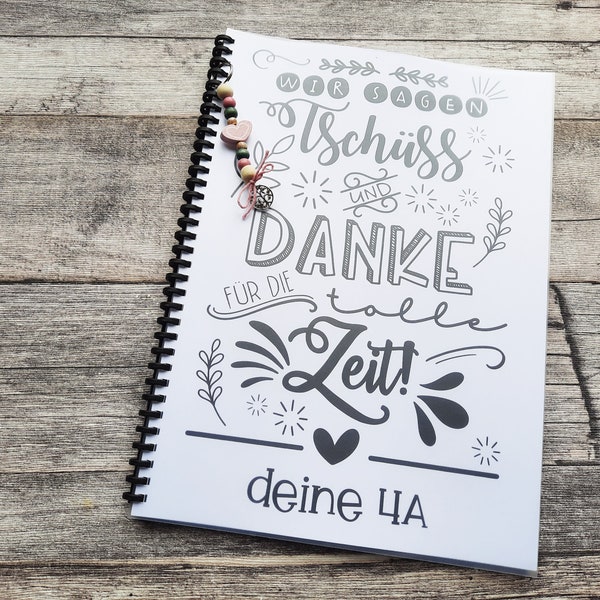 WIR SAGEN
Tschüss
UND
DANKE
FÜR DIE tolle
Zeit!
deine 4A